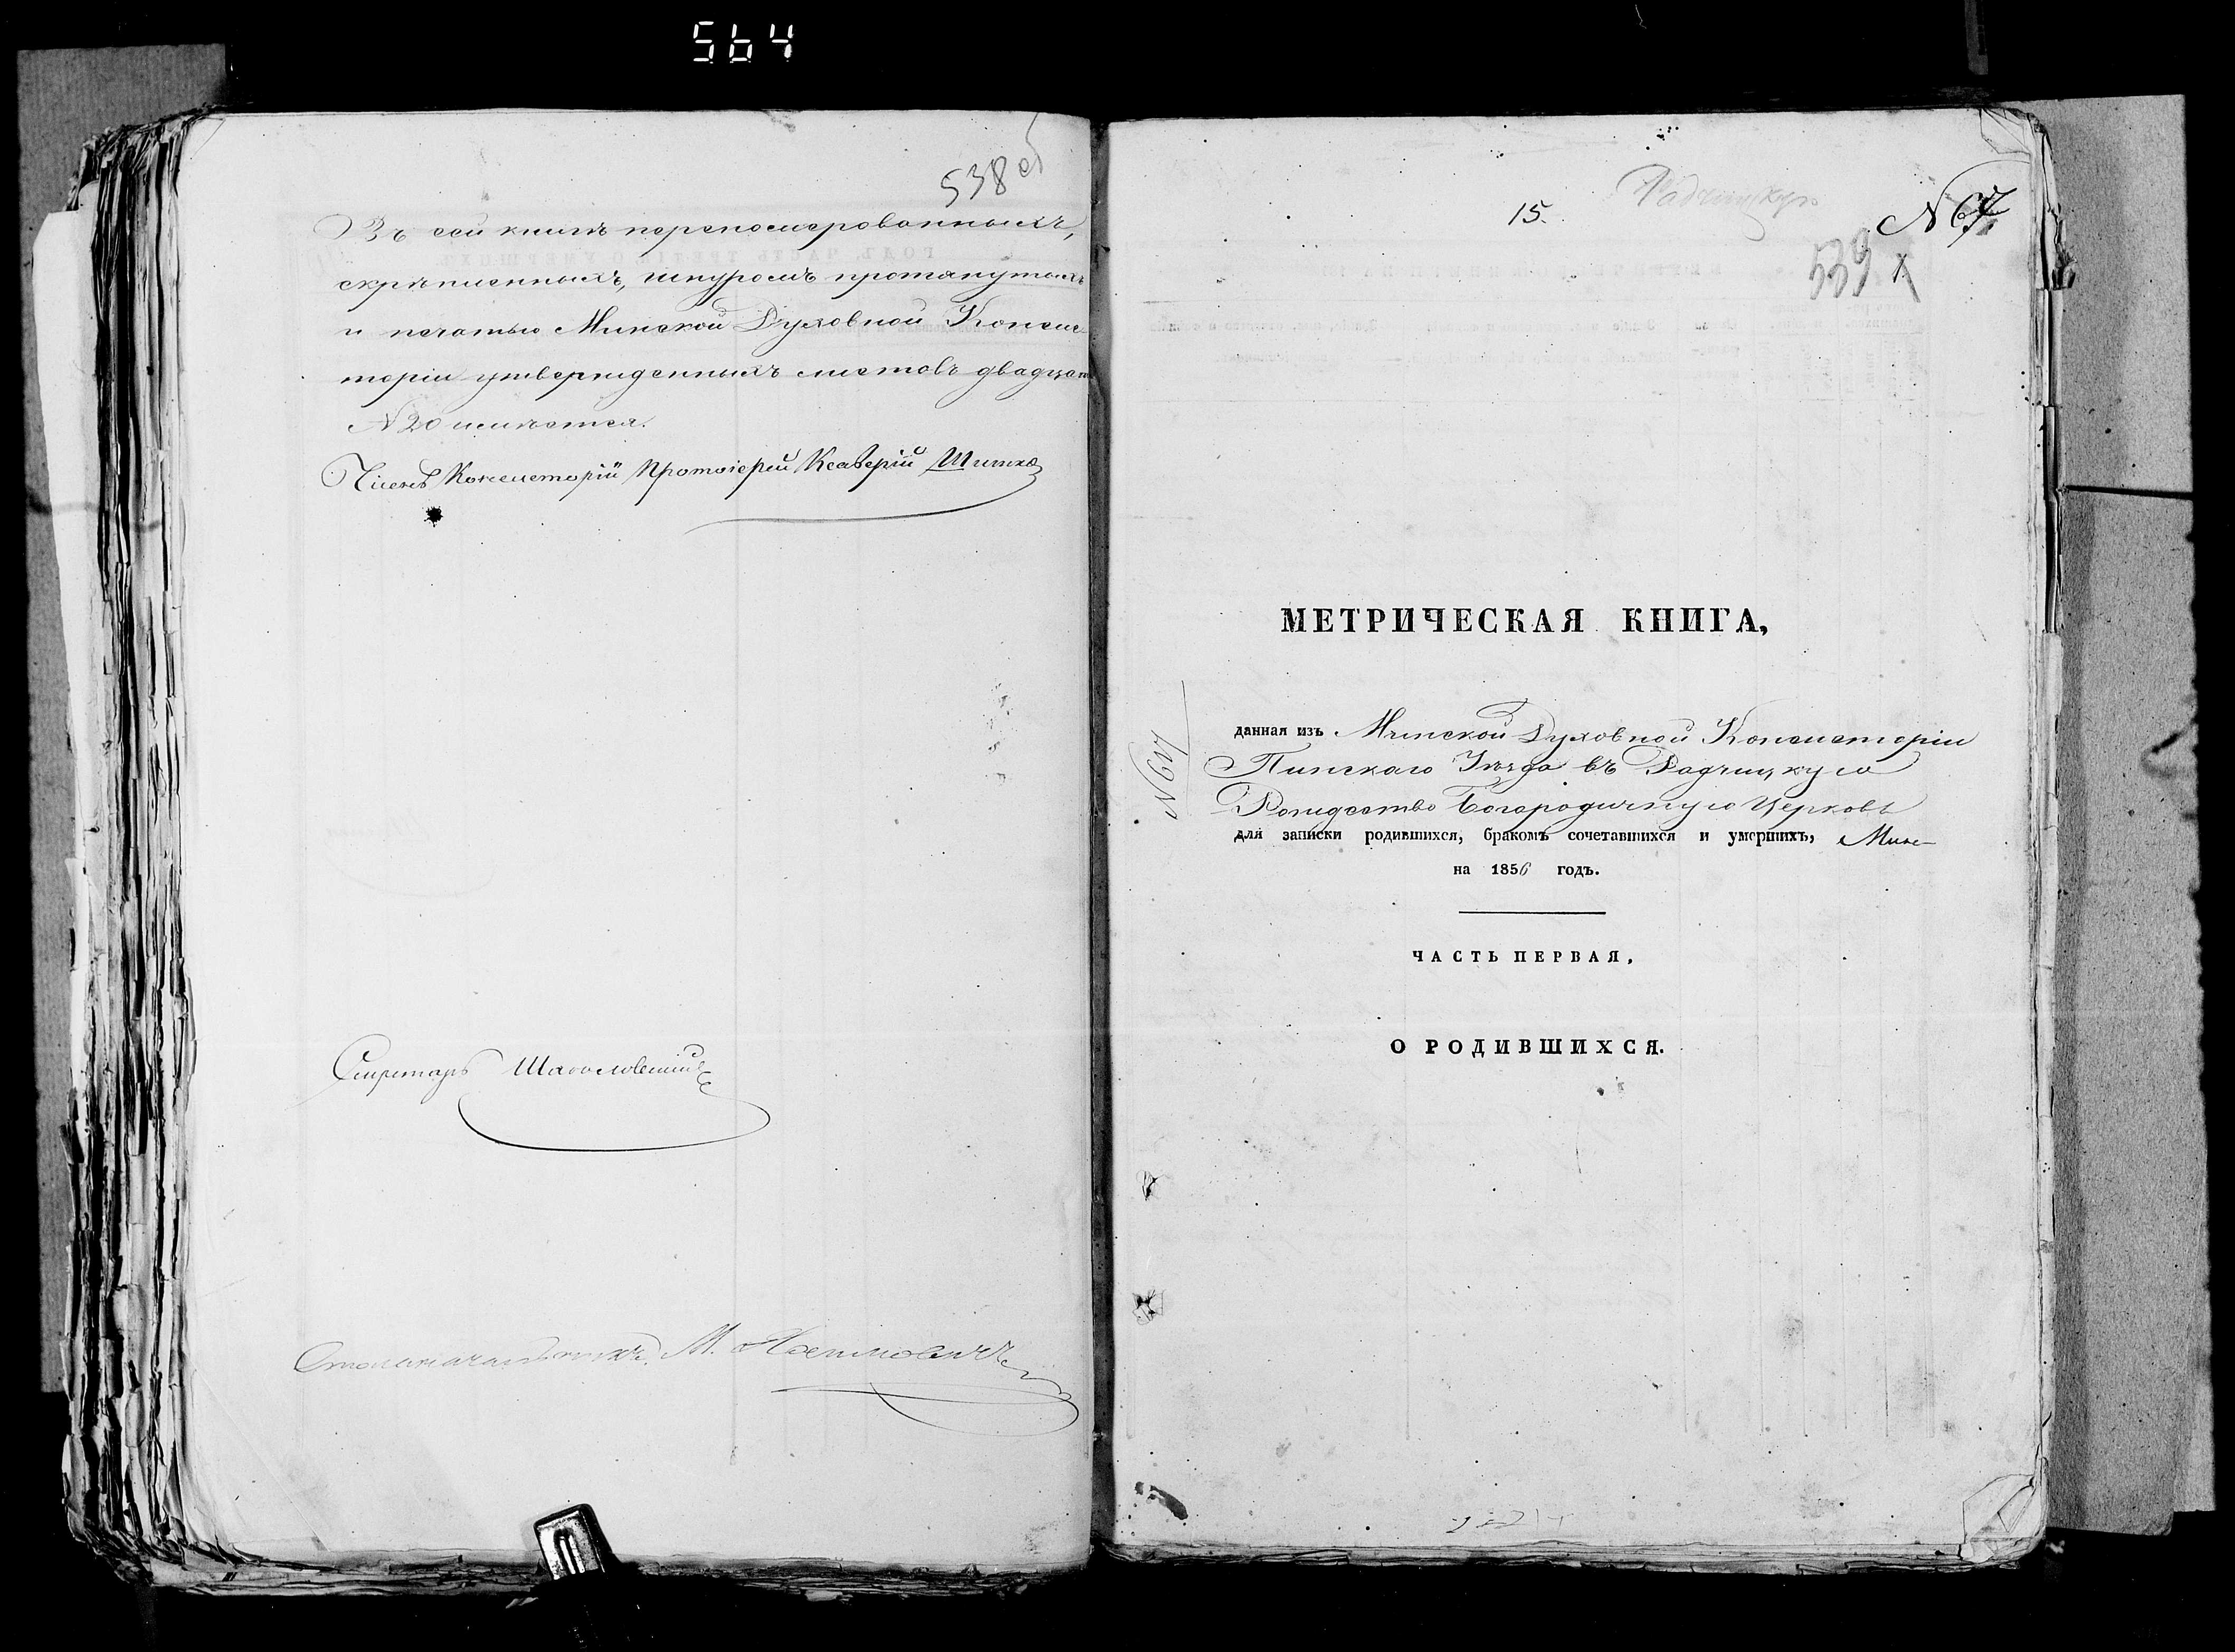 564
538 об
Въ сей книгѣ переномерованныхъ,
скрѣпленныхъ, шнуромъ протянутыхъ
и печатью Минской Духовной Консис-
торіи утвержденныхъ листовъ двадцать
N 20 имѣется.
Членъ Консисторіи Протоіерей Ксаверій
Секретарь
Столоначальникъ М.
15.
Радчицкую
N 67
539
МЕТРИЧЕСКАЯ КНИГА,
N 67
данная изъ Минской Духовной Консисторіи
Пинскаго Уѣзда въ Радчицкую
Рождество Богородичную Церковь
для записки родившихся, бракомъ сочетавшихся и умершихъ,
на 1856 годъ.
ЧАСТЬ ПЕРВАЯ.
О РОДИВШИХСЯ.